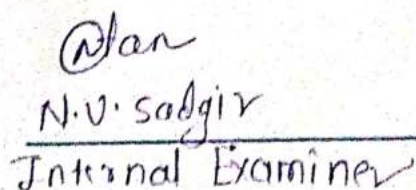 N.V. Sadgir
Internal Examiner